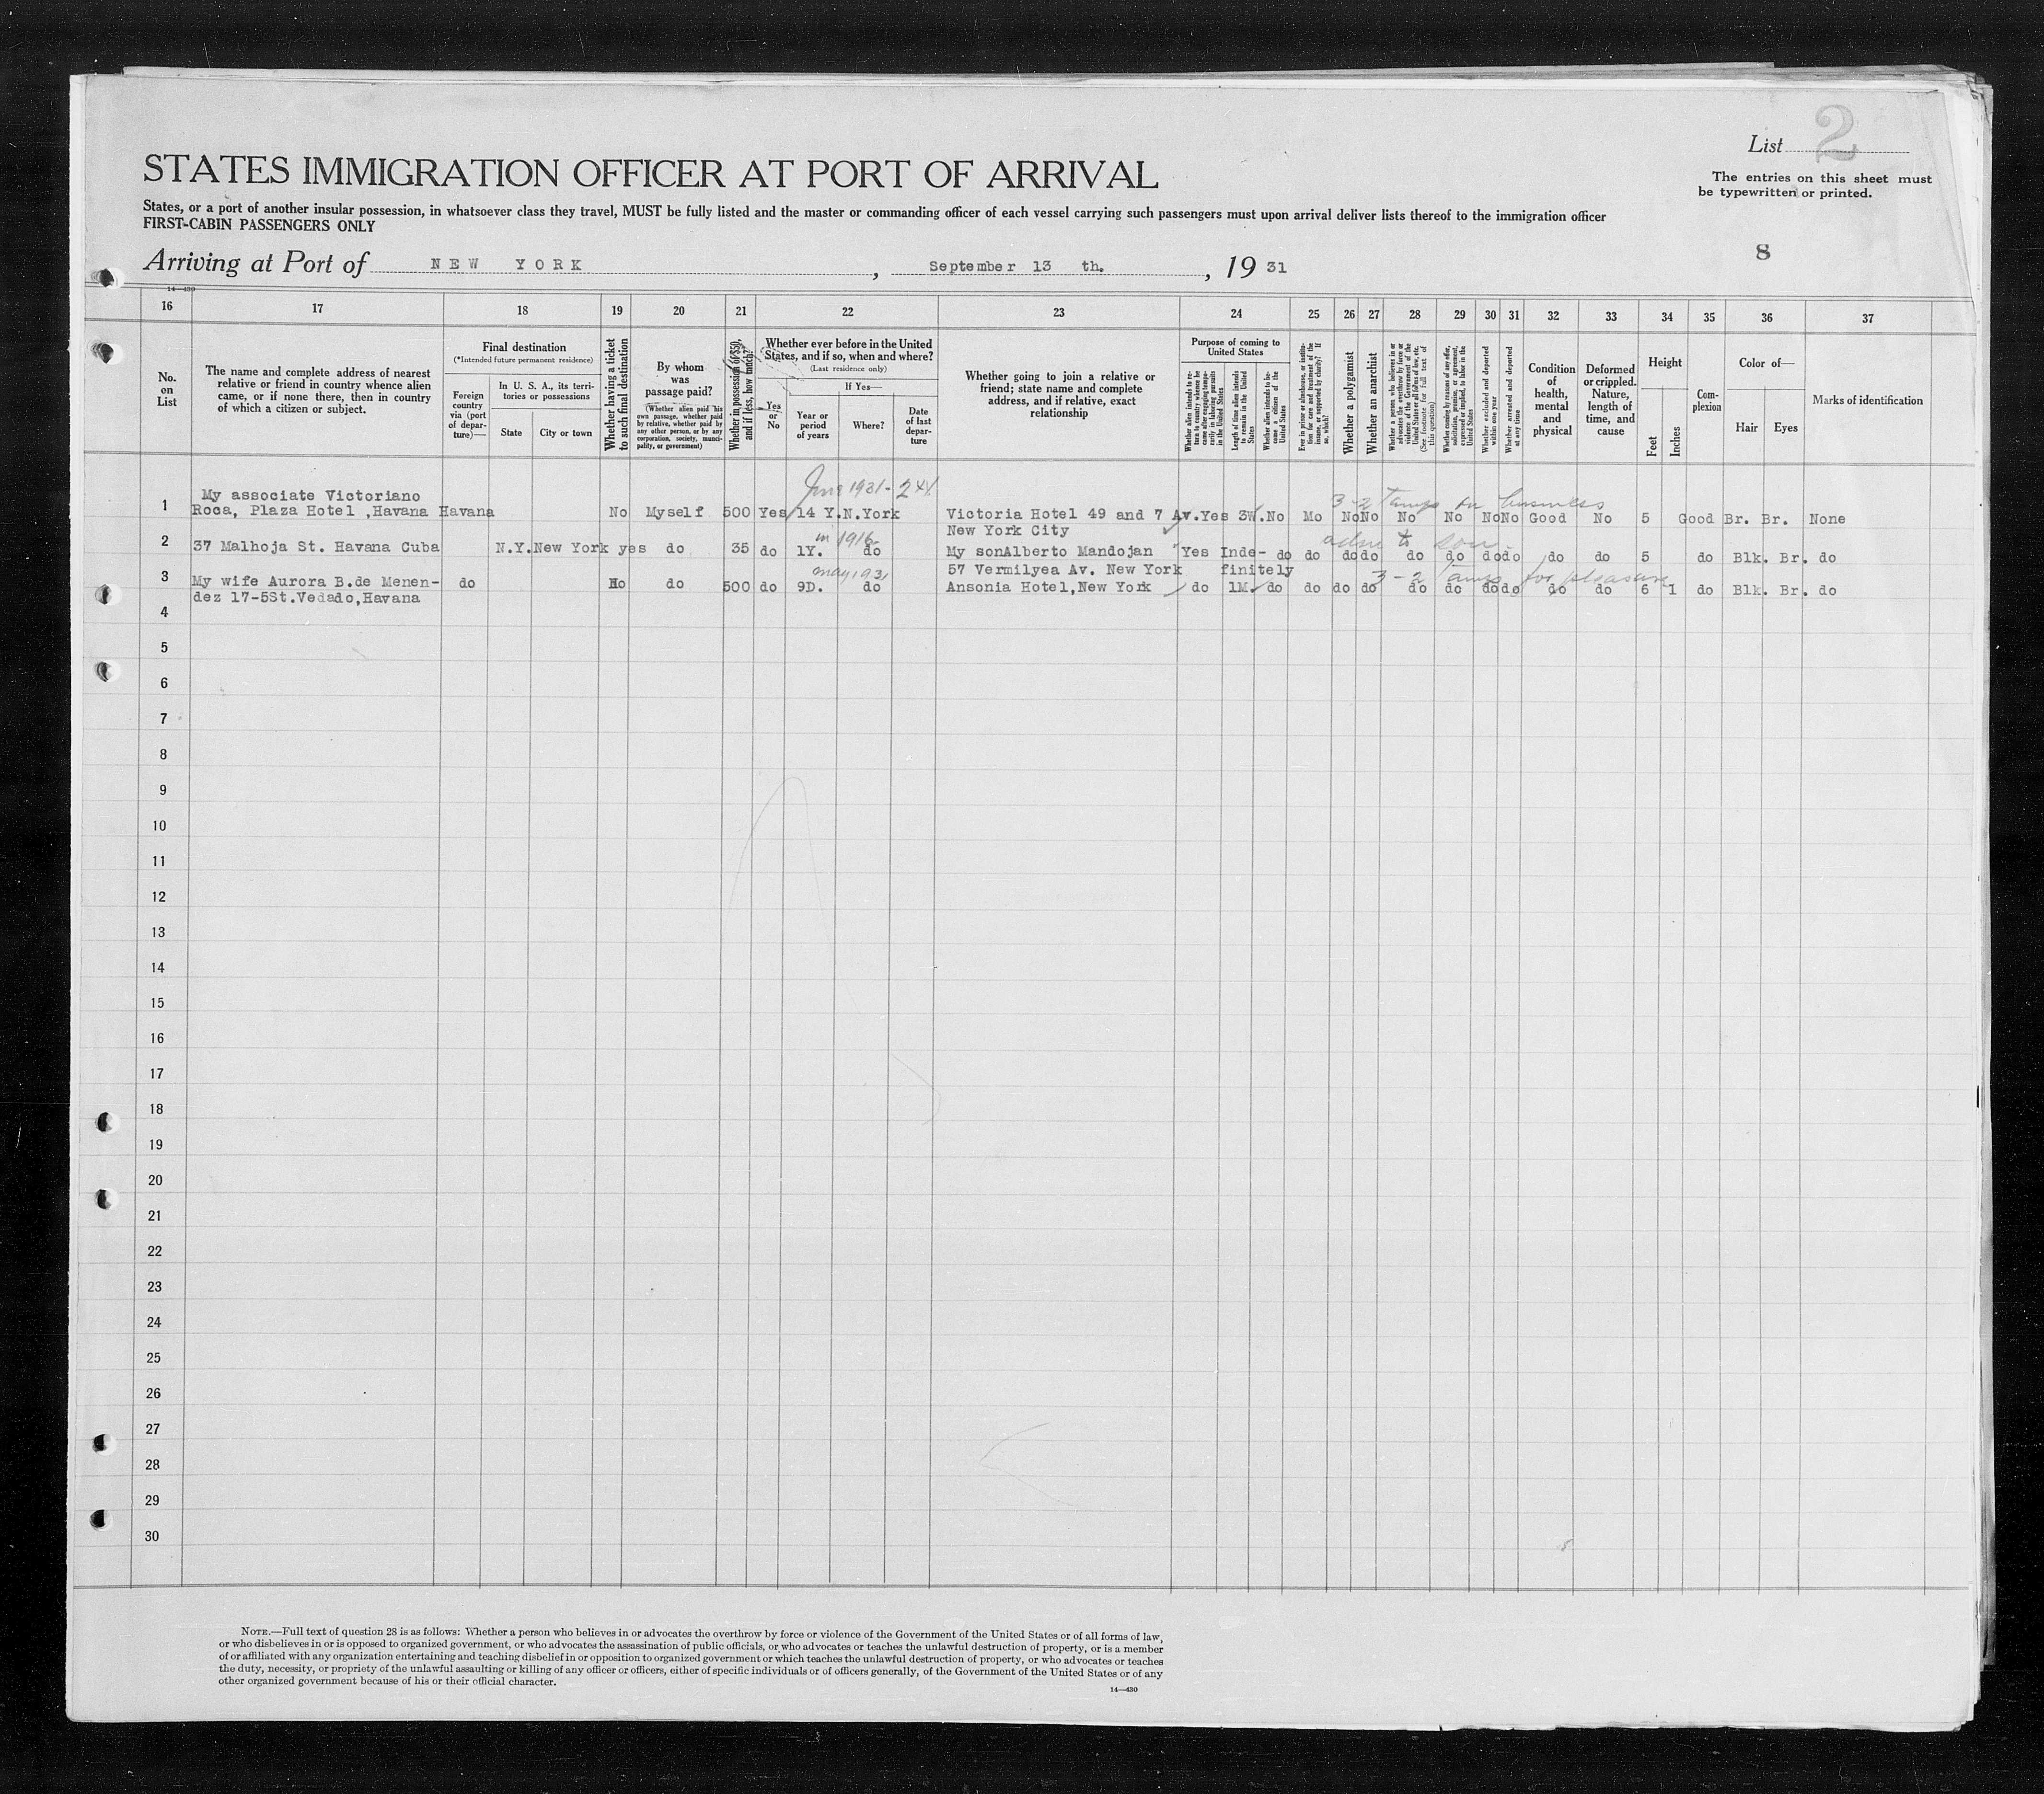 List 2
The entries on this sheet must
be typewritten or printed.
STATES IMMIGRATION OFFICER AT PORT OF ARRIVAL
States, or a port of another insular possession, in whatsoever class they travel, MUST be fully listed and the master or commanding officer of each vessel carrying such passengers must upon arrival deliver lists thereof to the immigration officer
FIRST-CABIN PASSENGERS ONLY
8
Arriving at Port of NEW YORK, September 13 th., 19 31
14—430
16 17 18 19 20 21 22 23 24 25 26 27 28 29 30 31 32 33 34 35 36 37
No.
on
List
The name and complete address of nearest
relative or friend in country whence alien
came, or if none there, then in country
of which a citizen or subject.
Final destination
(*Intended future permanent residence)
Foreign
country
via (port
of depar-
ture)—
In U. S. A., its terri-
tories or possessions
State
City or town
Whether having a ticket
to such final destination
By whom
was
passage paid?
(Whether alien paid his
own passage, whether paid
by relative, whether paid by
any other person, or by any
corporation, society, munici-
pality, or government)
Whether in possession of $50,
and if less, how much?
Whether ever before in the United
States, and if so, when and where?
(Last residence only)
Yes
or
No
If Yes—
Year or
period
of years
Where?
Date
of last
depar-
ture
Whether going to join a relative or
friend; state name and complete
address, and if relative, exact
relationship
Purpose of coming to
United States
Whether alien intends to re-
turn to country whence he
came after engaging tempo-
rarily in laboring pursuits
in the United States
Length of time alien intends
to remain in the United
States
Whether alien intends to be-
come a citizen of the
United States
Ever in prison or almshouse, or institu-
tion for care and treatment of the
insane, or supported by charity? If
so, which?
Whether a polygamist
Whether an anarchist
Whether a person who believes in or
advocates the overthrow by force or
violence of the Government of the
United States or all forms of law, etc.
(See footnote for full text of
this question)
Whether coming by reason of any offer,
solicitation, promise, or agreement,
expressed or implied, to labor in the
United States
Whether excluded and deported
within one year
Whether arrested and deported
at any time
Condition
of
health,
mental
and
physical
Deformed
or crippled.
Nature,
length of
time, and
cause
Height
Feet
Inches
Com-
plexion
Color of—
Hair
Eyes
Marks of identification
June 1931 -
My associate Victoriano
3-2 Temp for business
1 Roca, Plaza Hotel ,Havana Havana No Myself 500 Yes 14 Y.N.York Victoria Hotel 49 and 7 Av.Yes 3W.No Mo No No No No No No Good No 5 Good Br. Br. None
New York City
in 1916
adm to son
2 37 Malhoja St. Havana Cuba N.Y.New York yes do 35 do 1Y. do My sonAlberto Mandojan Yes Inde- do do do do do do do do do do 5 do Blk. Br. do
57 Vermilyea Av. New York finitely
may 1931
3-2 Temp for pleasure
3 My wife Aurora B.de Menen- do No do 500 do 9D. do Ansonia Hotel,New York do 1M. do do do do do do do do do do 6 1 do Blk. Br. do
dez 17-5St.Vedado,Havana
4
5
6
7
8
9
10
11
12
13
14
15
16
17
18
19
20
21
22
23
24
25
26
27
28
29
30
NOTE.—Full text of question 28 is as follows: Whether a person who believes in or advocates the overthrow by force or violence of the Government of the United States or of all forms of law,
or who disbelieves in or is opposed to organized government, or who advocates the assassination of public officials, or who advocates or teaches the unlawful destruction of property, or is a member
of or affiliated with any organization entertaining and teaching disbelief in or opposition to organized government or which teaches the unlawful destruction of property, or who advocates or teaches
the duty, necessity, or propriety of the unlawful assaulting or killing of any officer or officers, either of specific individuals or of officers generally, of the Government of the United States or of any
other organized government because of his or their official character.
14—430